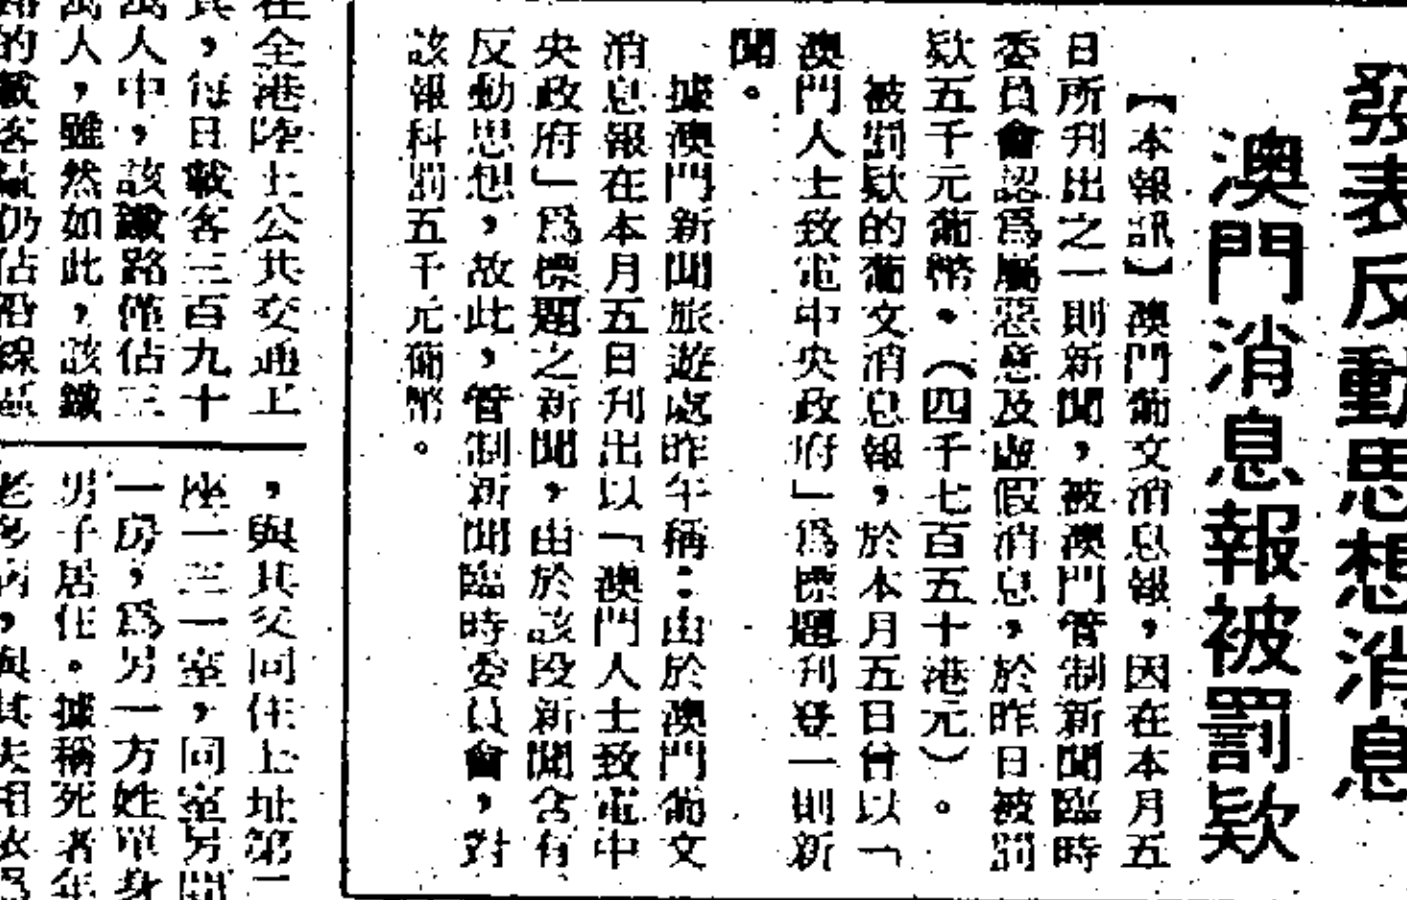 發表反動思想消息
澳門消息報被罰欵
【本報訊】澳門葡文消息報，因在本月五
日所刋出之一則新聞，被澳門管制新聞臨時
委員會認爲屬惡意及虛假消息，於昨日被罰
欵五千元葡幣。（四千七百五十港元）。
被罰欵的葡文消息報，於本月五日曾以「
澳門人士致電中央政府」爲標題刋登一則新
聞。
據澳門新聞旅遊處昨午稱：由於澳門葡文
消息報在本月五日刋出以「澳門人士致電中
央政府」爲標題之新聞，由於該段新聞含有
反動思想，故此，管制新聞臨時委員會，對
該報科罰五千元葡幣。
在全港陸上公共交通工
，每日載客三百九十
萬人中，該鐵路僅佔三
萬人，雖然如此，該鐵
的載客量仍佔沿線區
，與其父同住上址第二
座一三一室，同室另間
一房，爲另一方姓單身
男子居住。據稱死者年
老多病，與其夫相依爲